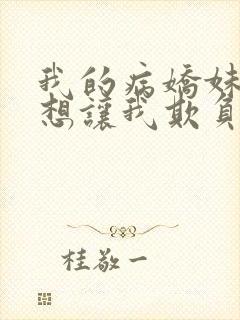 我的病嬌妹
想讓我欺負
桂敬一